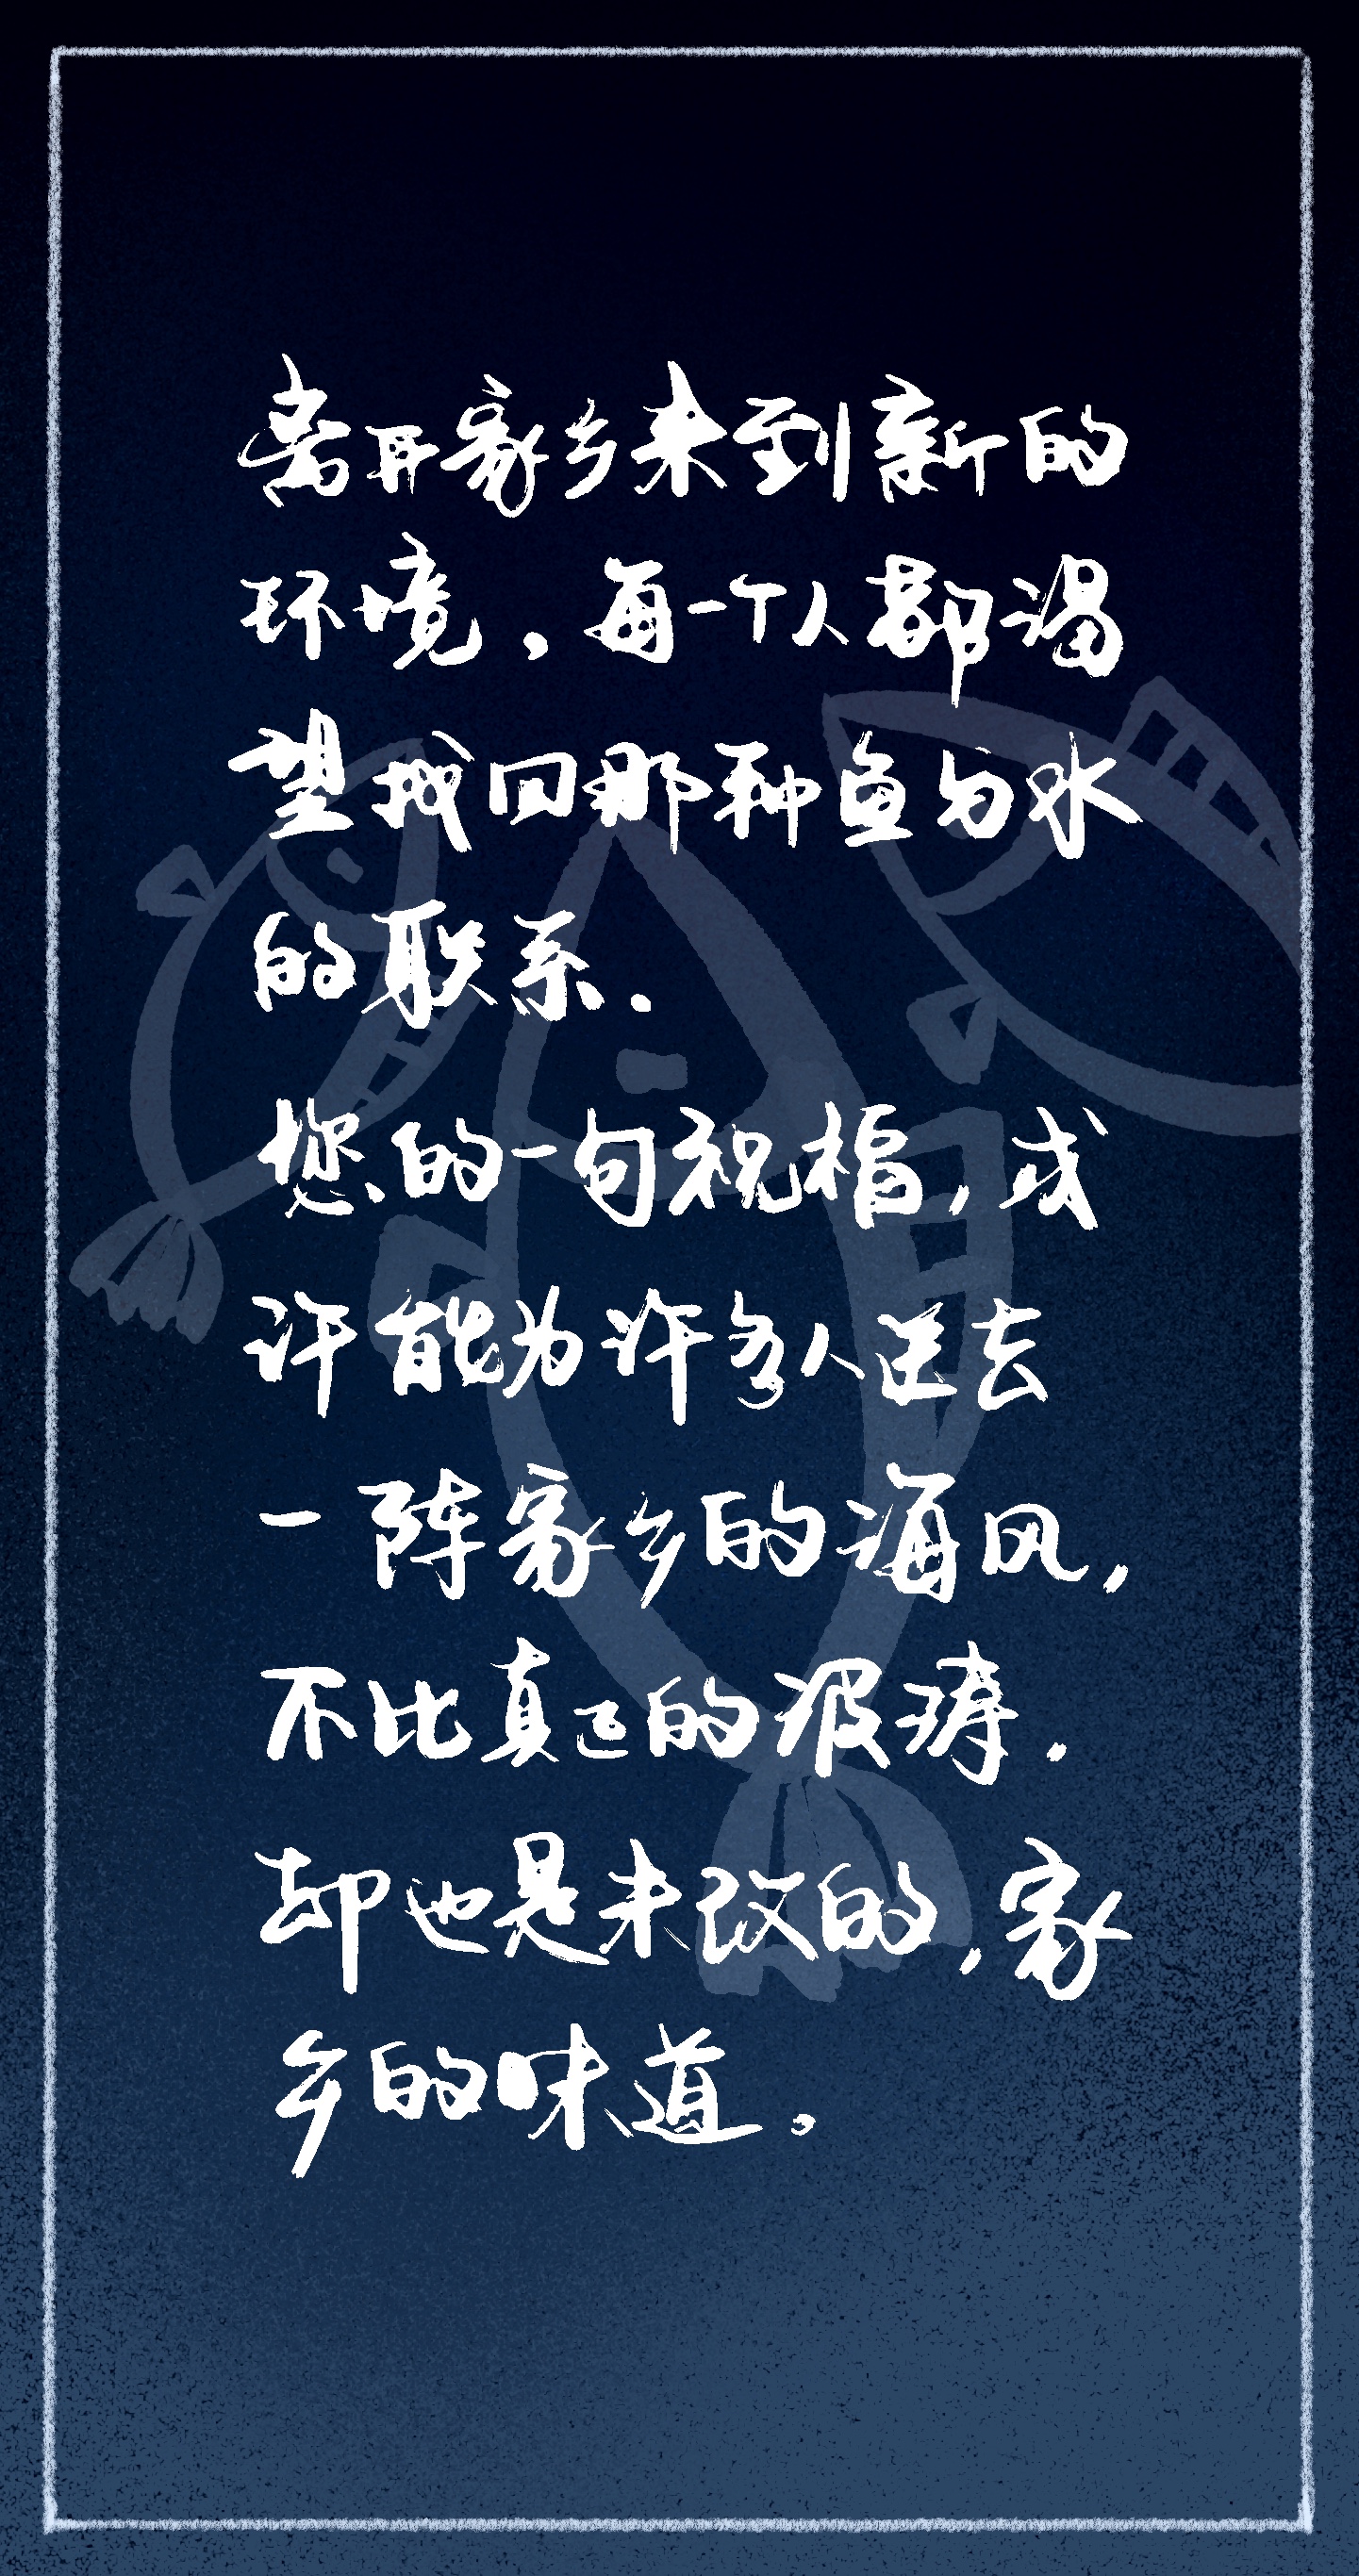 离开家乡来到新的
环境，每一个人都渴
望找回那种鱼与水
的联系.
您的一句祝福，或
许能为许多人送去
一阵家乡的海风，
不比真正的波涛.
却也是未改的，家
乡的味道。